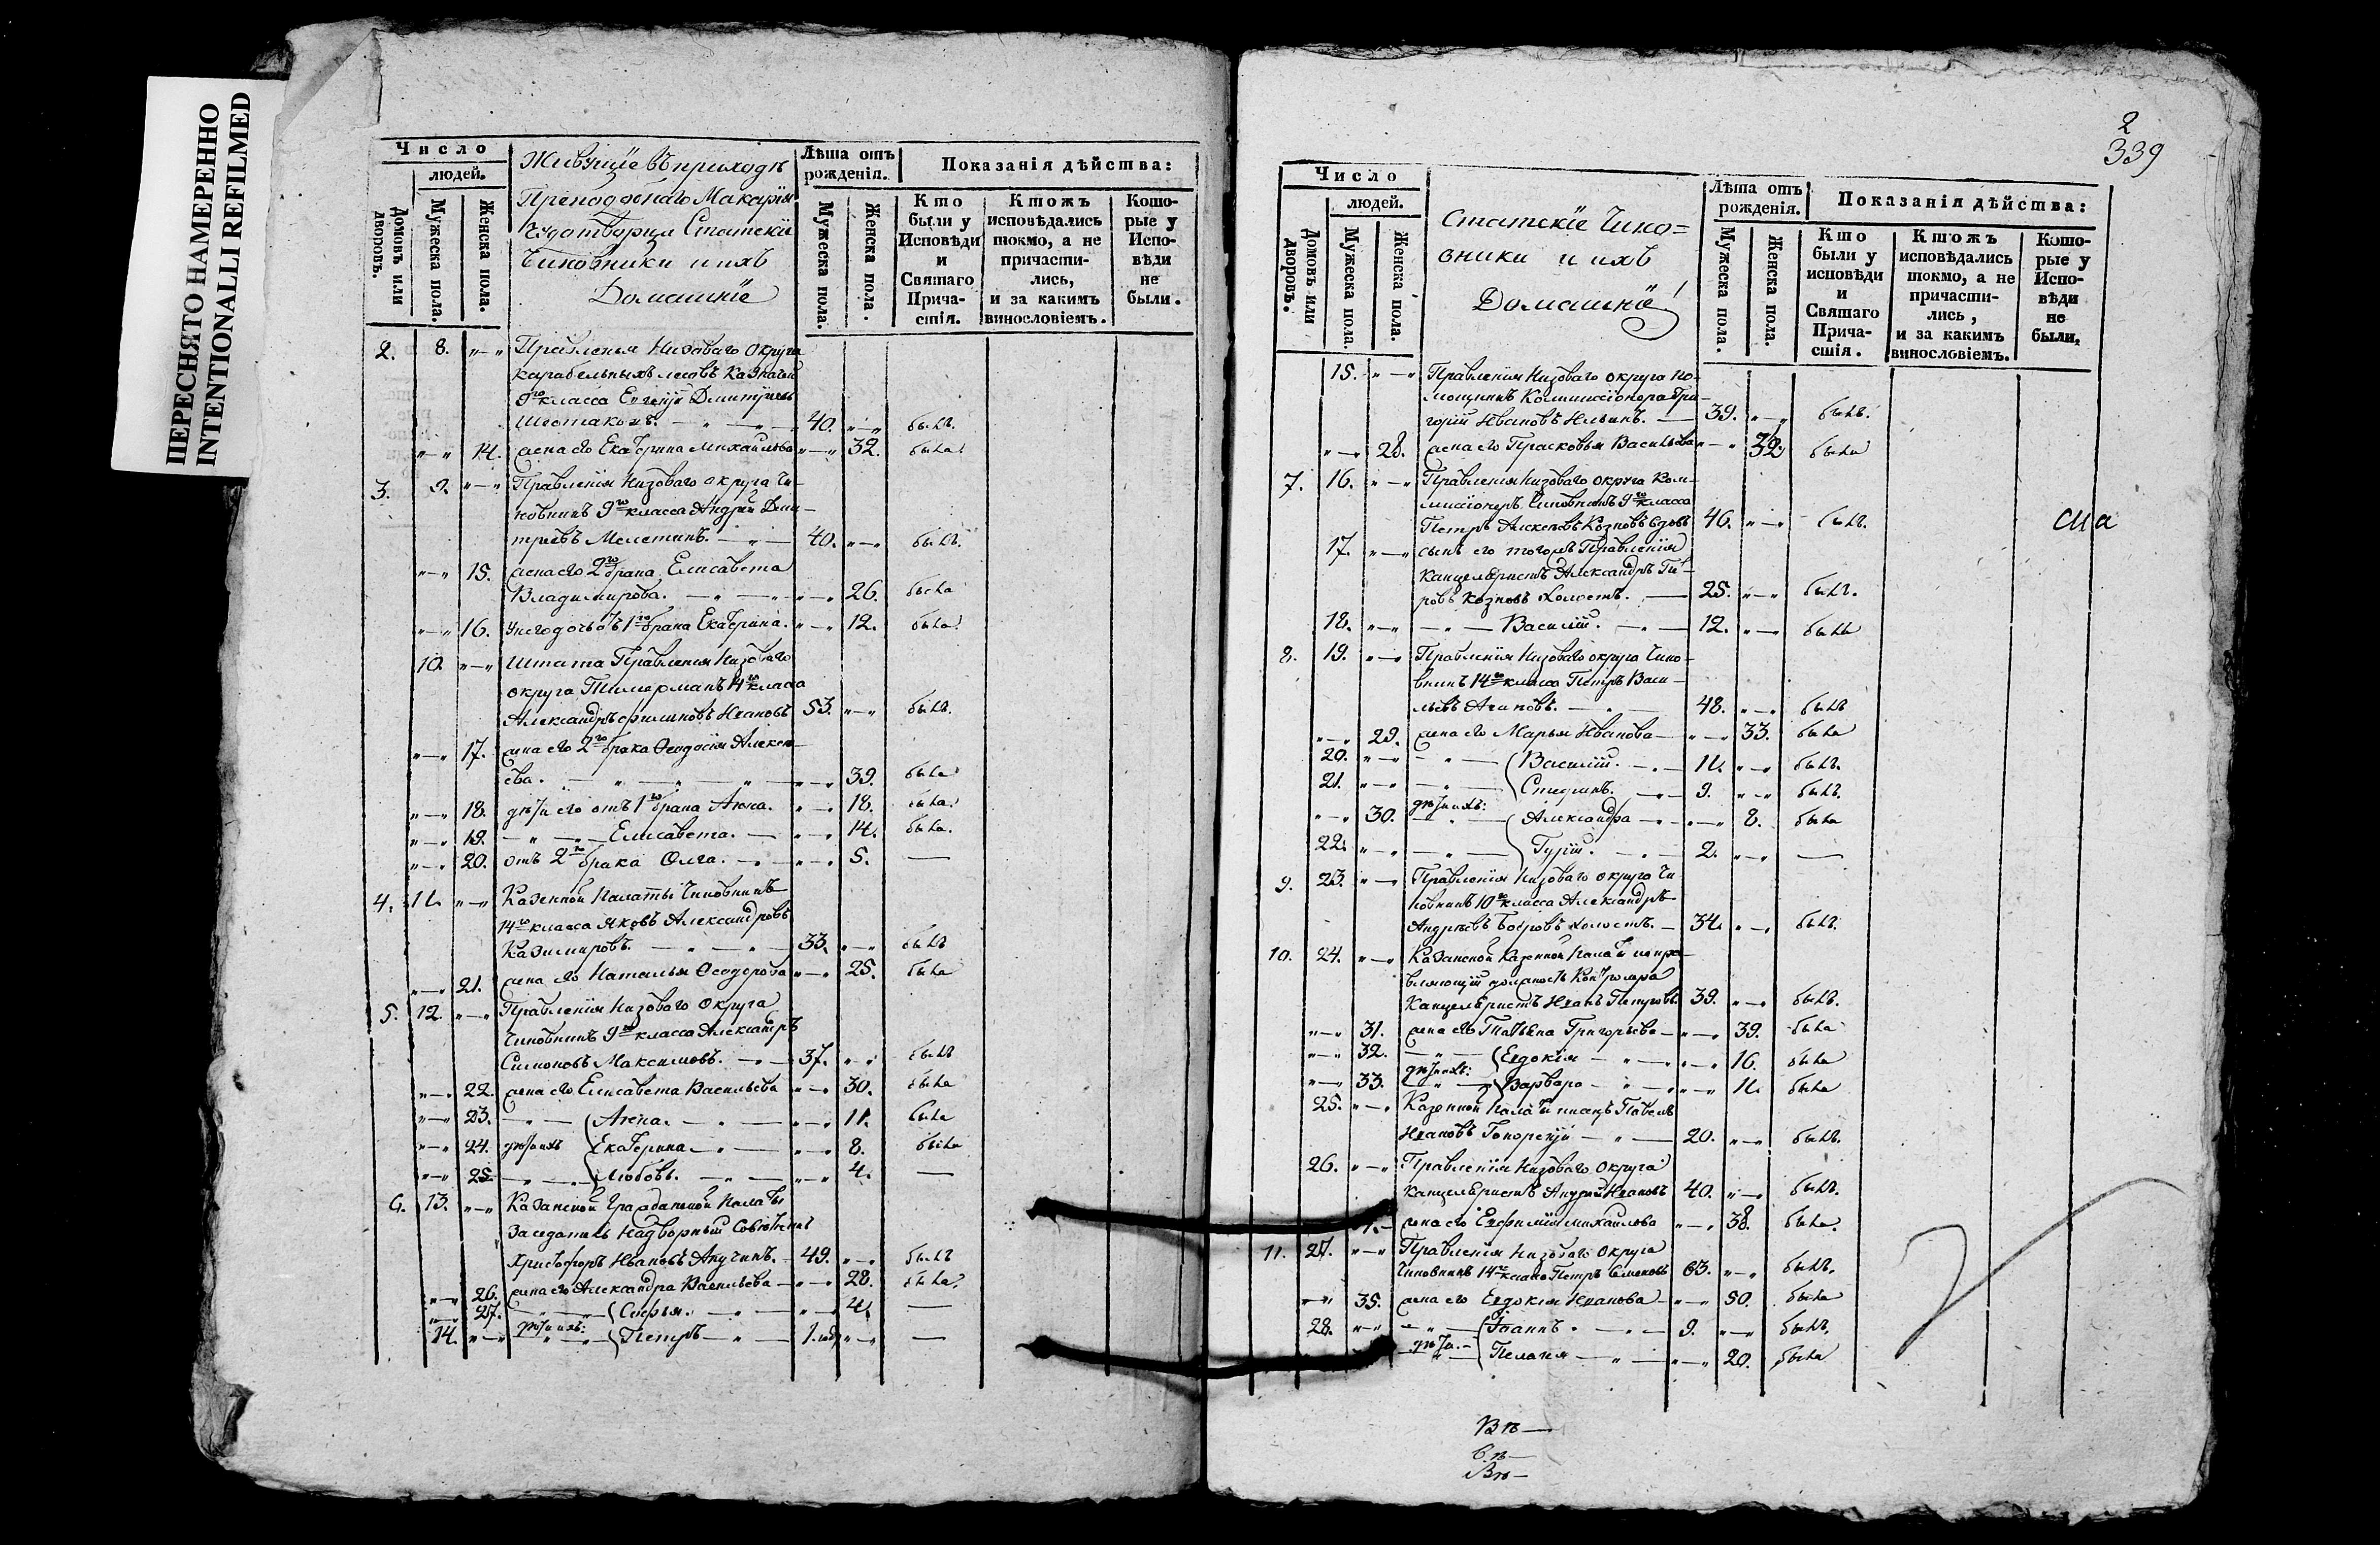 ПЕРЕСНЯТО НАМЕРЕННО
INTENTIONALLI REFILMED
Число
людей.
Домовъ или дворовъ.
Мужеска пола.
Женска пола.
Живущіе въ приходѣ
Преподобнаго Макарія
Чудотворца Статскіе
Чиновники и ихъ
Домашніе
Лѣта отъ рожденія.
Мужеска пола.
Женска пола.
Показанія дѣйства:
Кто были у Исповѣди и Святаго Причастія.
Ктожъ исповѣдались токмо, а не причастились, и за какимъ винословіемъ.
Которые у Исповѣди не были.
2. 8. „—„ Правленія Низоваго Округа
карабельныхъ лесовъ Казначей
9го класса Евгеній Дмитріевъ
Шестаковъ. 40. „—„ былъ.
„—„ 14. жена его Екатерина Михайлова „—„ 32. была
3. 9. „—„ Правленія Низоваго округа Чи-
новникъ 9го класса Андрей Дми-
тріевъ Мелетинъ. 40. „—„ былъ.
„—„ 15. жена его 2го брака Елисавета
Владимирова. „—„ 26. была
„—„ 16. у него дочь отъ 1го брака Екатерина. „—„ 12. была
10. „—„ Штата Правленія Низоваго
округа Тимерманъ 14го класса
Александръ Филиповъ Ивановъ 53. „—„ былъ.
„—„ 17. жена его 2го брака Феодосія Алексе-
ева. „—„ 39. была
„—„ 18. дѣти его отъ 1го брака Анна. „—„ 18. была
„—„ 19. Елисавета. „—„ 14. была.
„—„ 20. отъ 2го брака Олга. „—„ 5. —
4. 11. „—„ Казенной Палаты Чиновникъ
14го класса Яковъ Александровъ
Казимировъ. 33. „—„ былъ
„—„ 21. жена его Наталья Феодорова „—„ 25. была
5. 12. „—„ Правленія Низоваго Округа
Чиновникъ 9го класса Александръ
Симоновъ Максимовъ. 37. „—„ былъ
„—„ 22. жена его Елисавета Васильева „—„ 30. была
„—„ 23. Анна. „—„ 11. была
„—„ 24. дѣти ихъ Екатерина „—„ 8. была
„—„ 25. Любовь. „—„ 4. —
6. 13. „—„ Казанской Гражданской Палаты
Заседатель Надворный Советникъ
Христофоръ Ивановъ Анучинъ. 49. „—„ былъ
„—„ 26. жена его Александра Васильева „—„ 28. была
„—„ 27. Софья. „—„ 4. —
14. „—„ дѣти ихъ: Петръ 1. год „—„ —
2
339
Число
людей.
Домовъ или дворовъ.
Мужеска пола.
Женска пола.
Статскіе Чино=
вники и ихъ
Домашнѣ
Лѣта отъ рожденія.
Мужеска пола.
Женска пола.
Показанія дѣйства:
Кто были у исповѣди и Святаго Причастія.
Ктожъ исповѣдались токмо, а не причастились, и за какимъ винословіемъ.
Которые у Исповѣди не были.
15. „—„ Правленія Низоваго округа по-
мощникъ Коммиссіонера Гри-
горій Ивановъ Ильинъ. 39. „—„ былъ.
„—„ 28. жена его Прасковья Васильева „—„ 32. была
7. 16. „—„ Правленія Низоваго округа Ком-
миссіонеръ Чиновникъ 9го класса
Петръ Алексеевъ Козновъ вдовъ 46. „—„ былъ.
17. „—„ сынъ его тогожъ Правленія
Канцеляристъ Александръ Пе-
ровъ Козновъ холостъ. 25. „—„ былъ.
18. „—„ Василій. 12. „—„ былъ
8. 19. „—„ Правленія Низоваго округа Чино-
вникъ 14го класса Петръ Васи-
льевъ Агаповъ. 48. „—„ былъ
„—„ 29. жена его Марья Иванова „—„ 33. была
20. „—„ Василій. 11. „—„ былъ.
21. „—„ Стефанъ. 9. „—„ былъ.
„—„ 30. дѣти ихъ: Александра „—„ 8. была
22. „—„ Гурій. 2. „—„ —
9. 23. „—„ Правленія Низоваго округа Чи-
новникъ 10го класса Александръ
Андреевъ Бобровъ холостъ. 34. „—„ былъ.
10. 24. „—„ Казанской Казенной Палаты испра-
вляющій должность Контролера
Канцеляристъ Иванъ Петровъ 39. „—„ былъ.
„—„ 31. жена его Татьяна Григорьева „—„ 39. была
„—„ 32. Евдокія „—„ 16. была
„—„ 33. дѣти ихъ: Варвара „—„ 11. была
25. „—„ Казенной Палаты писецъ Павелъ
Ивановъ 20. „—„ былъ.
26. „—„ Правленія Низоваго Округа
Канцеляристъ Андрей Ивановъ 40. „—„ былъ.
жена его Евфимія Михайлова „—„ 38. была.
11. 27. „—„ Правленія Низоваго Округа
Чиновникъ 14го класса Петръ Семеновъ 63. „—„ былъ.
„—„ 35. жена его Евдокія Иванова „—„ 50. была
28. „—„ Іоаннъ. 9. „—„ былъ.
дѣти. Пелагія „—„ 20. была
Въ—
Въ—